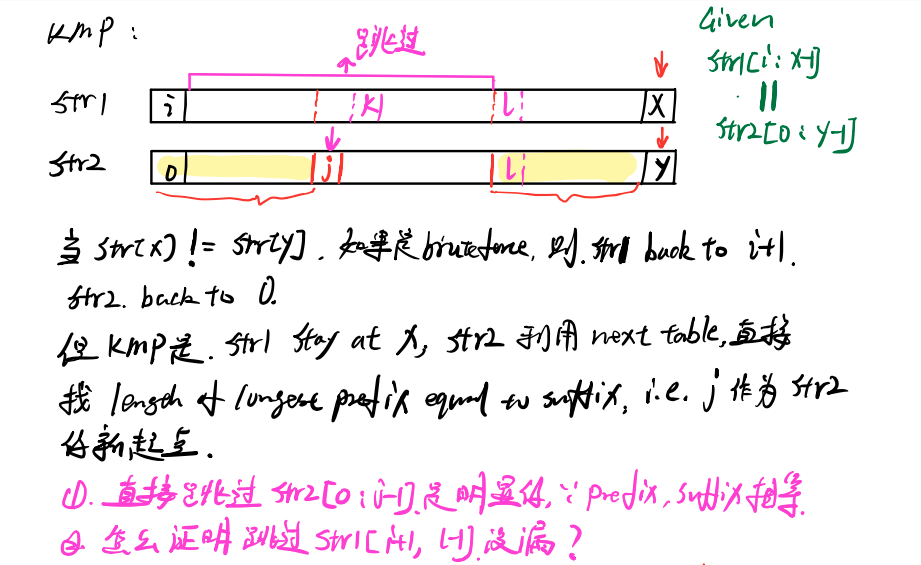 KMP :
跳过
Given
str1[i : X-1]
||
str2[0 : Y-1]
str1 i k l X
str2 0 j l Y
当 str[x] != str[y] . 如果是bruteforce, 则. str1 back to i+1.
str2. back to 0.
但 KMP是. str1 stay at X, str2 利用 next table, 直接
找 length of longest prefix equal to suffix, i.e. j 作为 str2
的新起点.
①. 直接跳过 str2[0 : j-1] 是明显的, ∵ prefix, suffix相等.
②. 怎么证明跳过 str1[i+1, l-1] 没漏?